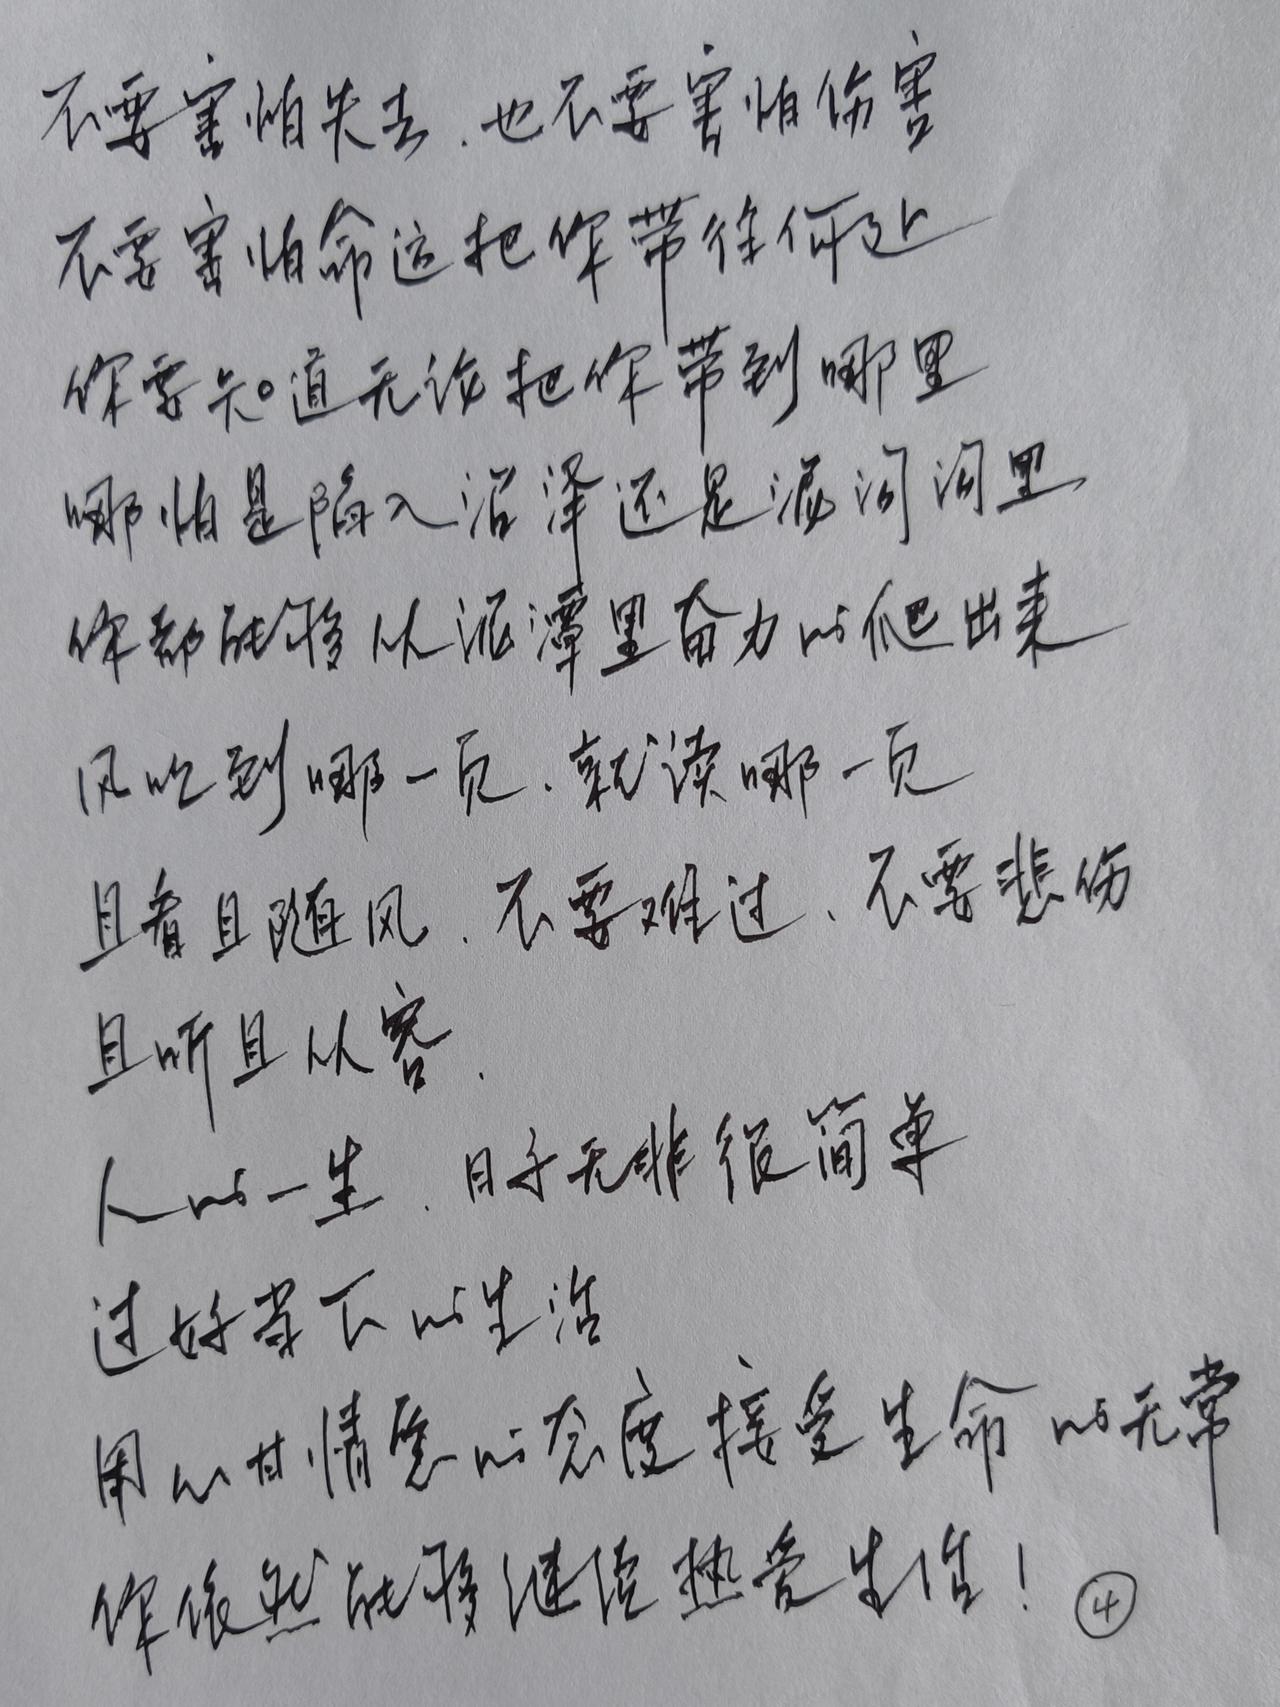 不要害怕失去.也不要害怕伤害
不要害怕命运把你带往何处
你要知道无论把你带到哪里
哪怕是陷入沼泽还是泥沟沟里
你都能够从泥潭里奋力的爬出来
风吹到哪一页.就读哪一页
且看且随风.不要难过、不要悲伤
且听且从容.
人的一生.日子无非很简单
过好当下的生活
用心甘情愿的态度接受生命的无常
你依然能够继续热爱生活！④